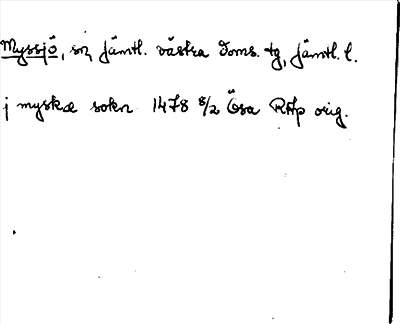 Myssjö, sn, Jämtl. västra doms. tg, Jämtl. l.
j myskæ sokn 1478 8/2 Ösa RAp orig.